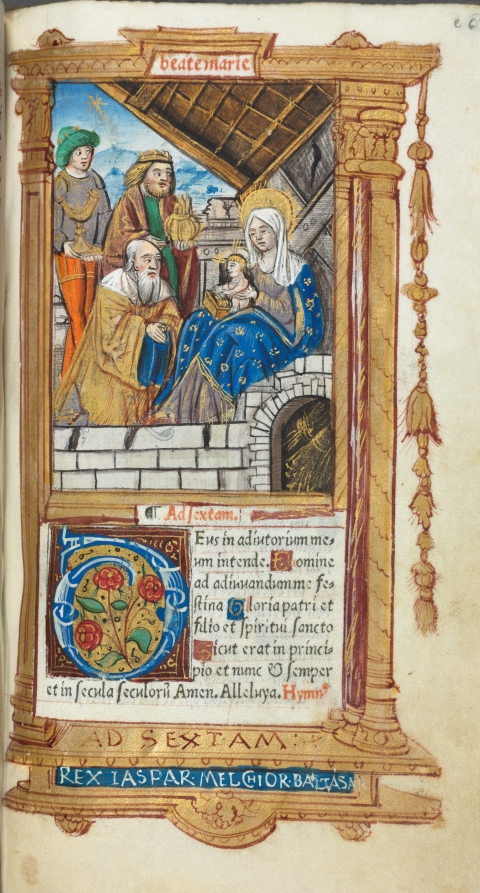 e 6
beate marie
Ad sextam.
Eus in adiutorium me-
um intende. Domine
ad adiuvandum me fe-
stina Gloria patri et
filio et spiritui sancto
Sicut erat in princi-
pio et nunc & semper
et in secula seculorū Amen. Alleluya. Hymnꝰ
AD SEXTAM:
REX IASPAR·MELCHIOR·BALTASAR